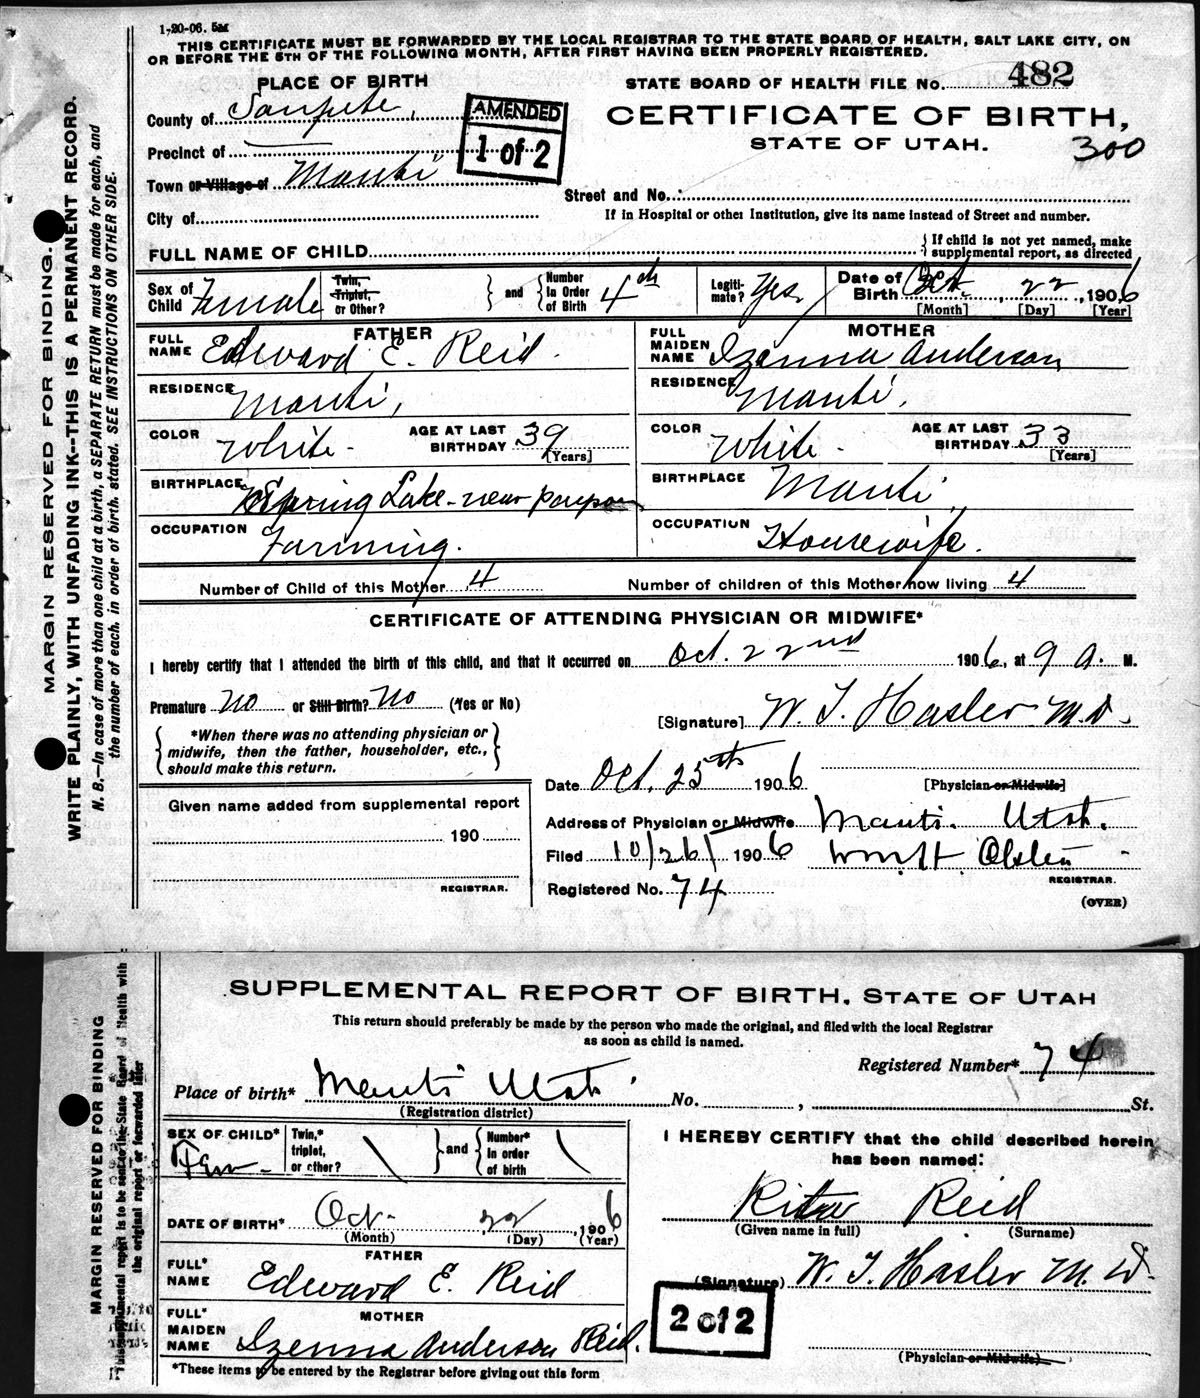 1-20-06. 5M
THIS CERTIFICATE MUST BE FORWARDED BY THE LOCAL REGISTRAR TO THE STATE BOARD OF HEALTH, SALT LAKE CITY, ON
OR BEFORE THE 5TH OF THE FOLLOWING MONTH, AFTER FIRST HAVING BEEN PROPERLY REGISTERED.
PLACE OF BIRTH
STATE BOARD OF HEALTH FILE No. 482
County of Sanpete,
AMENDED
1 of 2
CERTIFICATE OF BIRTH,
STATE OF UTAH.
300
Precinct of
Town or Village of Manti
Street and No.
City of
If in Hospital or other Institution, give its name instead of Street and number.
FULL NAME OF CHILD
If child is not yet named, make
supplemental report, as directed
Sex of Child Female
Twin, Triplet, or Other?
and
Number In Order of Birth 4th
Legiti-mate? Yes,
Date of Birth Oct. 22, 1906
[Month] [Day] [Year]
FATHER
FULL NAME Edward E. Reid.
MOTHER
FULL MAIDEN NAME Izenna Anderson
RESIDENCE Manti,
RESIDENCE Manti,
COLOR White.
AGE AT LAST BIRTHDAY 39 [Years]
COLOR White.
AGE AT LAST BIRTHDAY 33 [Years]
BIRTHPLACE Spring Lake-near payson
BIRTHPLACE Manti,
OCCUPATION Farming.
OCCUPATION Housewife.
Number of Child of this Mother 4
Number of children of this Mother now living 4
CERTIFICATE OF ATTENDING PHYSICIAN OR MIDWIFE*
I hereby certify that I attended the birth of this child, and that it occurred on Oct. 22nd 1906, at 9 a. M.
Premature no or Still Birth? no (Yes or No)
[Signature] W. T. Hasler M.D.
*When there was no attending physician or
midwife, then the father, householder, etc.,
should make this return.
Date Oct. 25th 1906
[Physician or Midwife]
Given name added from supplemental report
190
REGISTRAR.
Address of Physician or Midwife Manti. Utah.
Filed 10/26/ 1906
REGISTRAR.
Registered No. 74
(OVER)
MARGIN RESERVED FOR BINDING.
WRITE PLAINLY, WITH UNFADING INK--THIS IS A PERMANENT RECORD.
N. B.--In case of more than one child at a birth, a SEPARATE RETURN must be made for each, and
the number of each, in order of birth, stated. SEE INSTRUCTIONS ON OTHER SIDE.
SUPPLEMENTAL REPORT OF BIRTH, STATE OF UTAH
This return should preferably be made by the person who made the original, and filed with the local Registrar
as soon as child is named.
Registered Number* 74
Place of birth* Manti Utah
(Registration district)
No. , St.
SEX OF CHILD* Fem-
Twin,* triplet, or other?
and
Number* In order of birth
I HEREBY CERTIFY that the child described herein
has been named:
Rita Reid
(Given name in full) (Surname)
DATE OF BIRTH* Oct- 22, 1906
(Month) (Day) (Year)
FATHER
FULL* NAME Edward E. Reid
(Signature) W. T. Hasler M. D.
2 of 2
MOTHER
FULL* MAIDEN NAME Izenna Anderson Reid.
(Physician or Midwife)
*These items to be entered by the Registrar before giving out this form
MARGIN RESERVED FOR BINDING
This supplemental report is to be sent to the State Board of Health with
the original report or forwarded later